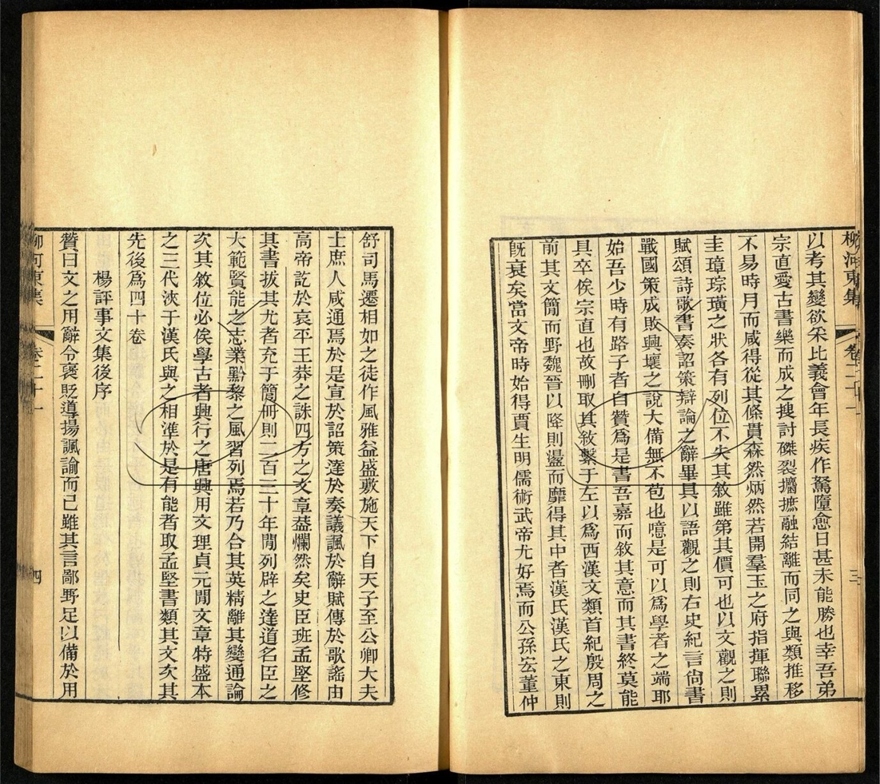 柳河東集 卷二十一 三
以考其變欲采比義會年長疾作駑墮愈日甚未能勝也幸吾弟
宗直愛古書樂而成之搜討磔裂攟摭融結離而同之與類推移
不易時月而咸得從其條貫森然炳然若開羣玉之府指揮聯累
圭璋琮璜之狀各有列位不失其敘雖第其價可也以文觀之則
賦頌詩歌書奏詔策辯論之辭畢具以語觀之則右史紀言尙書
戰國策成敗興壞之說大備無不苞也噫是可以爲學者之端耶
始吾少時有路子者自贊爲是書吾嘉而敘其意而其書終莫能
具卒俟宗直也故刪取其敘繫于左以爲西漢文類首紀殷周之
前其文簡而野魏晉以降則盪而靡得其中者漢氏漢氏之東則
旣衰矣當文帝時始得賈生明儒術武帝尤好焉而公孫宏董仲
舒司馬遷相如之徒作風雅益盛敷施天下自天子至公卿大夫
士庶人咸通焉於是宣於詔策達於奏議諷於辭賦傳於歌謠由
高帝訖於哀平王莽之誅四方之文章葢爛然矣史臣班孟堅修
其書拔其尤者充于簡冊則二百三十年閒列辟之達道名臣之
大範賢能之志業黔黎之風習列焉若乃合其英精離其變通論
次其敘位必俟學古者興行之唐興用文理貞元閒文章特盛本
之三代浹于漢氏與之相準於是有能者取孟堅書類其文次其
先後爲四十卷
楊評事文集後序
贊曰文之用辭令褒貶導揚諷諭而已雖其言鄙野足以備於用
柳河東集 卷二十一 四